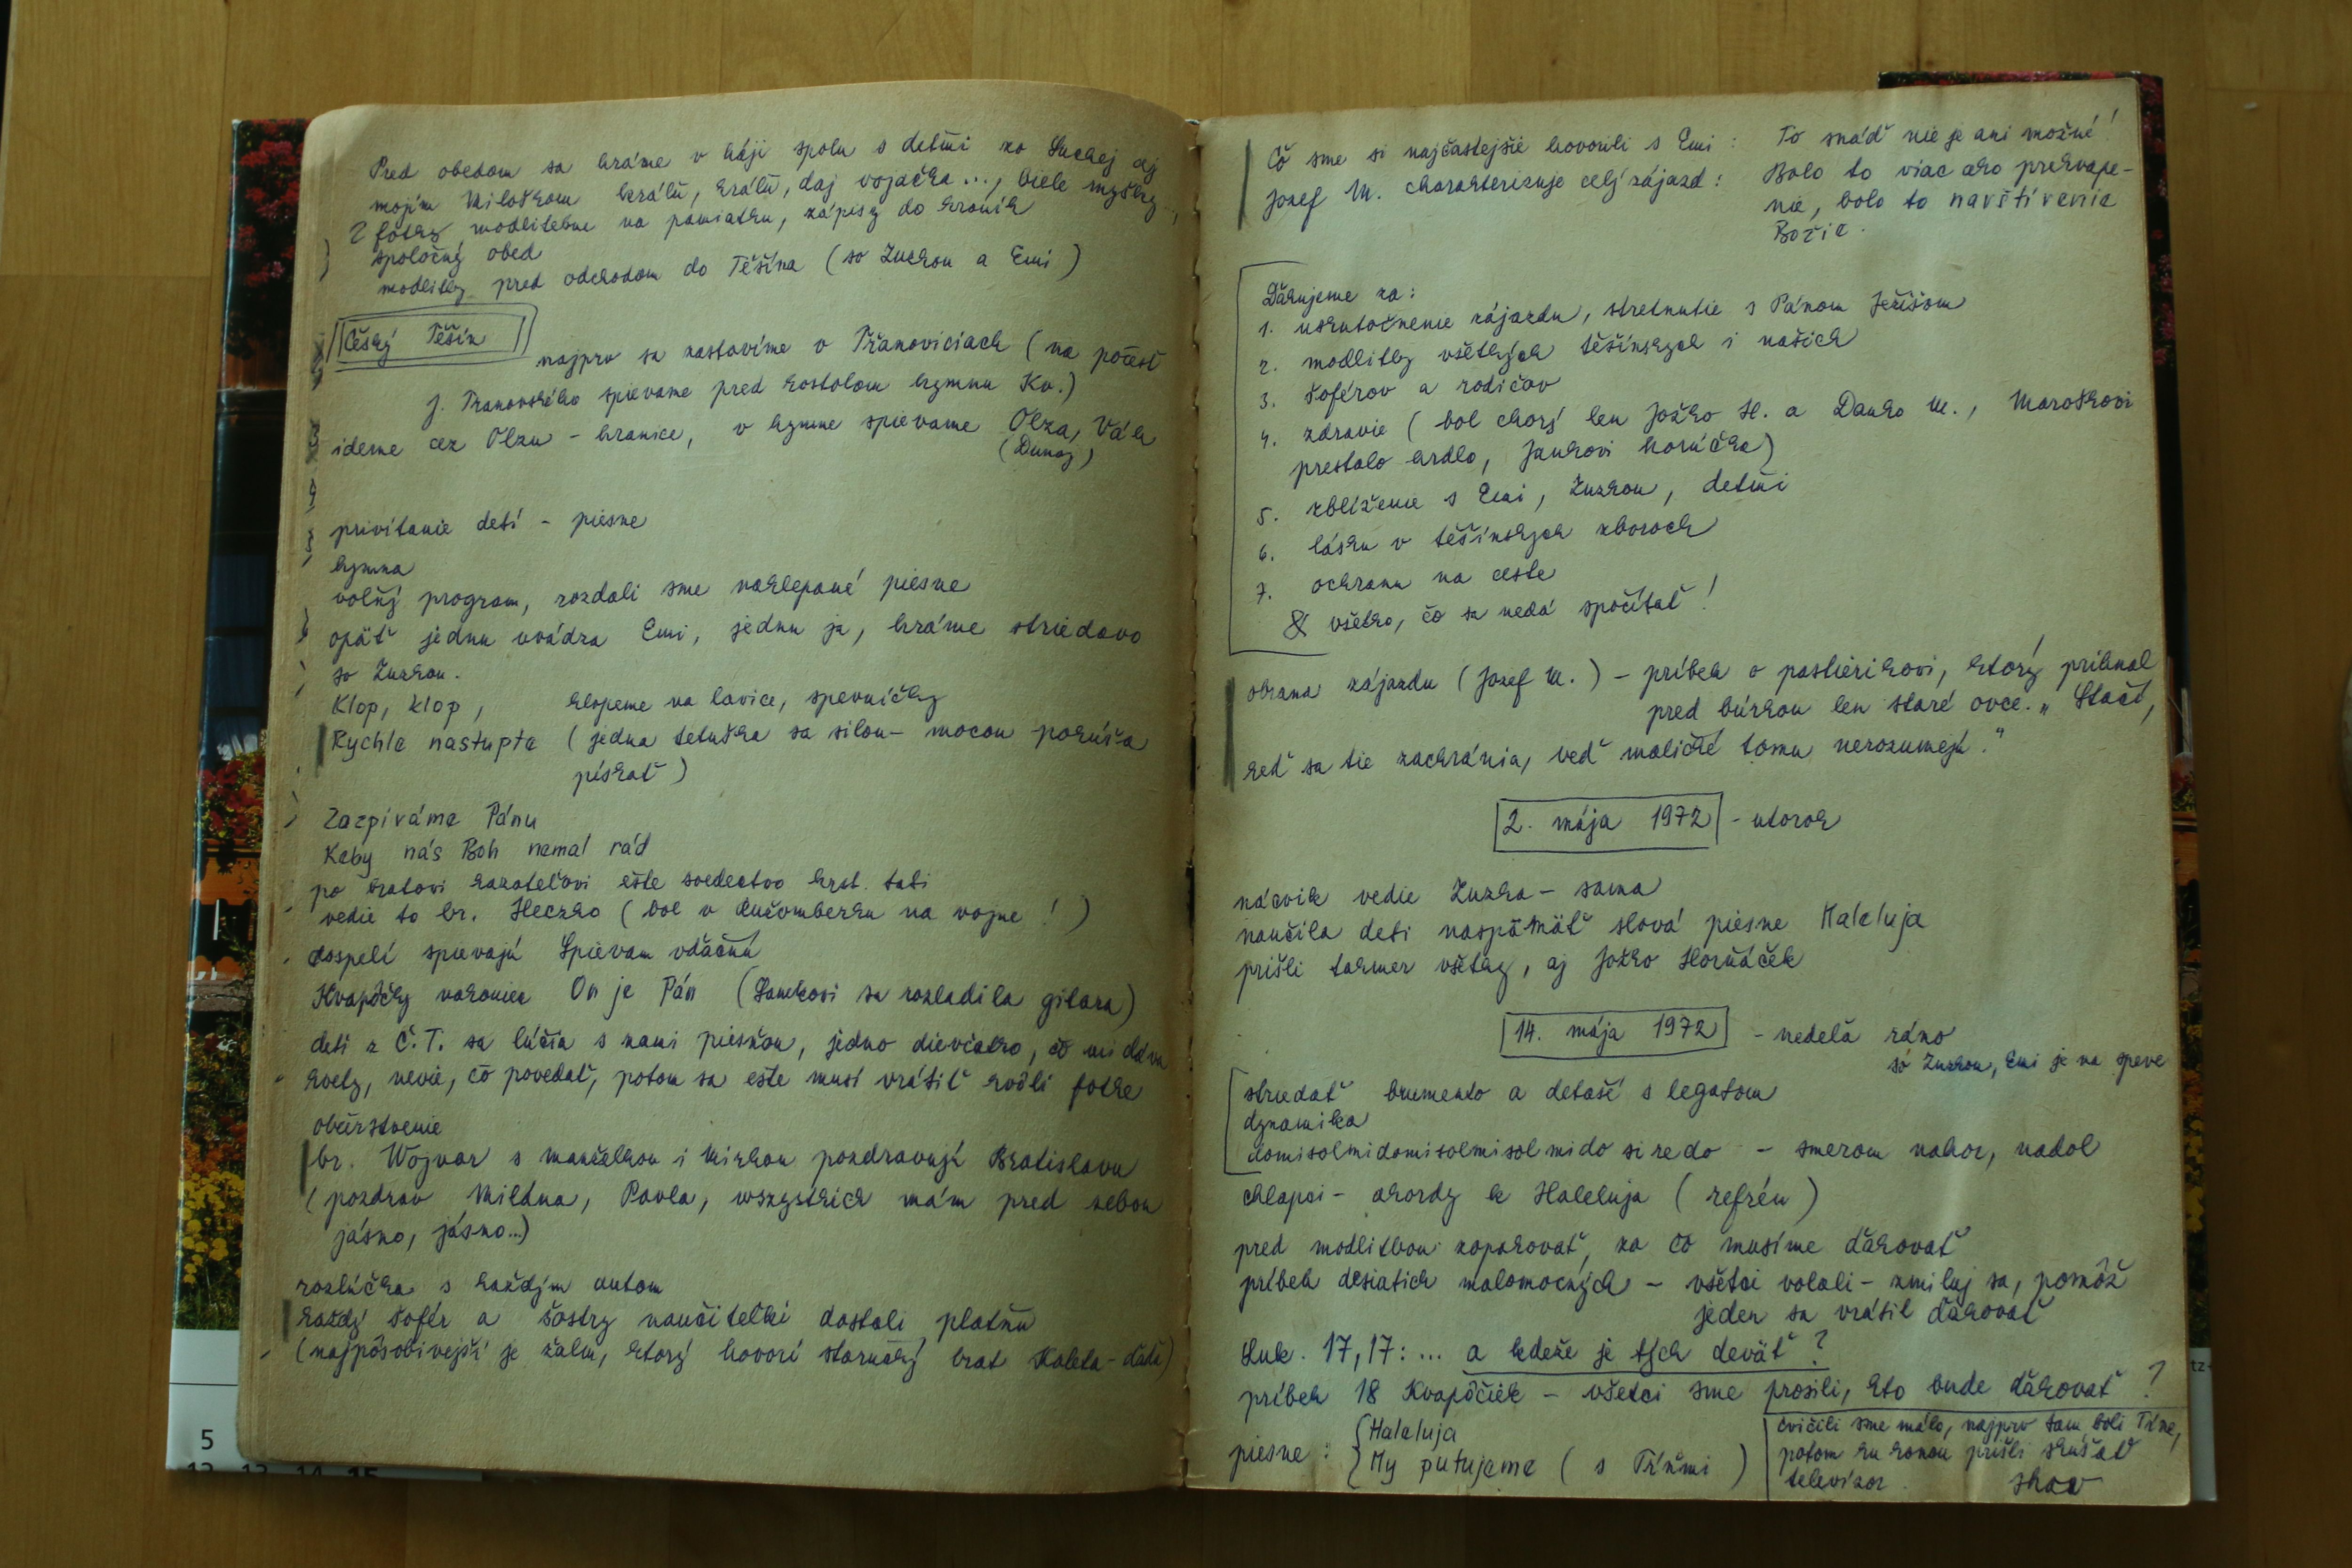 Pred obedom sa hráme v háji spolu s deťmi zo Suchej aj
mojím Miloškom kráľu, kráľu, daj vojačka..., biele myšky...,
2 fotky modlitebne na pamiatku, zápisy do kroník
spoločný obed
modlitby pred odchodom do Těšína (so Zuzkou a Emi)
Český Těšín
najprv sa zastavíme v Třanoviciach (na počesť
J. Tranovského spievame pred kostolom hymnu Kv.)
ideme cez Olzu - hranice, v hymne spievame Olza, Váh
(Dunaj)
privítanie detí - piesne
hymna
voľný program, rozdali sme naklepané piesne
opäť jednu uvádza Emi, jednu ja, hráme striedavo
so Zuzkou.
Klop, klop, klopeme na lavice, spevníčky
Rychle nastupte (jedna tetuška sa silou-mocou pokúša
pískať)
Zazpíváme Pánu
Keby nás Boh nemal rád
po bratovi kazateľovi ešte svedectvo krst. tati
vedie to br. Heczko (bol v Ružomberku na vojne!)
dospelí spievajú Spievam vďačnú
Kvapôčky nakoniec On je Pán (Jankovi sa rozladila gitara)
deti z Č.T. sa lúčia s nami piesňou, jedno dievčatko, čo mi dáva
kvety, nevie, čo povedať, potom sa ešte musí vrátiť kvôli fotke
občerstvenie
br. Wojnar s manželkou i Mirkou pozdravujú Bratislavu
(pozdrav Mildna, Pavla, wszystkich mám pred sebou
jásno, jásno...)
rozlúčka s každým autom
každý šofér a sestry naučiteľki dostali platňu
(najpôsobivejší je žalm, ktorý hovorí staručký brat Kaleta-dědi)
Čo sme si najčastejšie hovorili s Emi: To snáď nie je ani možné!
Jozef M. charakterizuje celý zájazd: Bolo to viac ako prekvape-
nie, bolo to navštívenie
Božie.
Ďakujeme za:
1. uskutočnenie zájazdu, stretnutie s Pánom Ježišom
2. modlitby všetkých těšínskych i našich
3. šoférov a rodičov
4. zdravie (bol chorý len Jožko H. a Danko M., Maroškovi
prestalo hrdlo, Jankovi horúčka)
5. zblíženie s Emi, Zuzkou, deťmi
6. lásku v těšínskych zboroch
7. ochranu na ceste
8 všetko, čo sa nedá spočítať!
obrana zájazdu (Jozef M.) - príbeh o pastierikovi, ktorý prihnal
pred búrkou len staré ovce. „Stačí,
keď sa tie zachránia, veď maličké tomu nerozumejú."
2. mája 1972 - utorok
nácvik vedie Zuzka - sama
naučila deti naspamäť slová piesne Haleluja
prišli takmer všetky, aj Jožko Horňáček
14. mája 1972 - nedeľa ráno
so Zuzkou, Emi je na speve
striedať brumendo a detašé s legatom
dynamika
domisolmidomisolmisolmido si re do - smerom nahor, nadol
chlapci - akordy k Haleluja (refrén)
pred modlitbou zopakovať, za čo musíme ďakovať
príbeh desiatich malomocných - všetci volali - zmiluj sa, pomôž
jeden sa vrátil ďakovať
Luk. 17,17: ... a kdeže je tých deväť?
príbeh 18 Kvapôčiek - všetci sme prosili, kto bude ďakovať?
piesne: Haleluja
My putujeme (s Tŕňmi)
cvičili sme málo, najprv tam boli Tŕne,
potom ku koncu prišli skúšať
televízor.